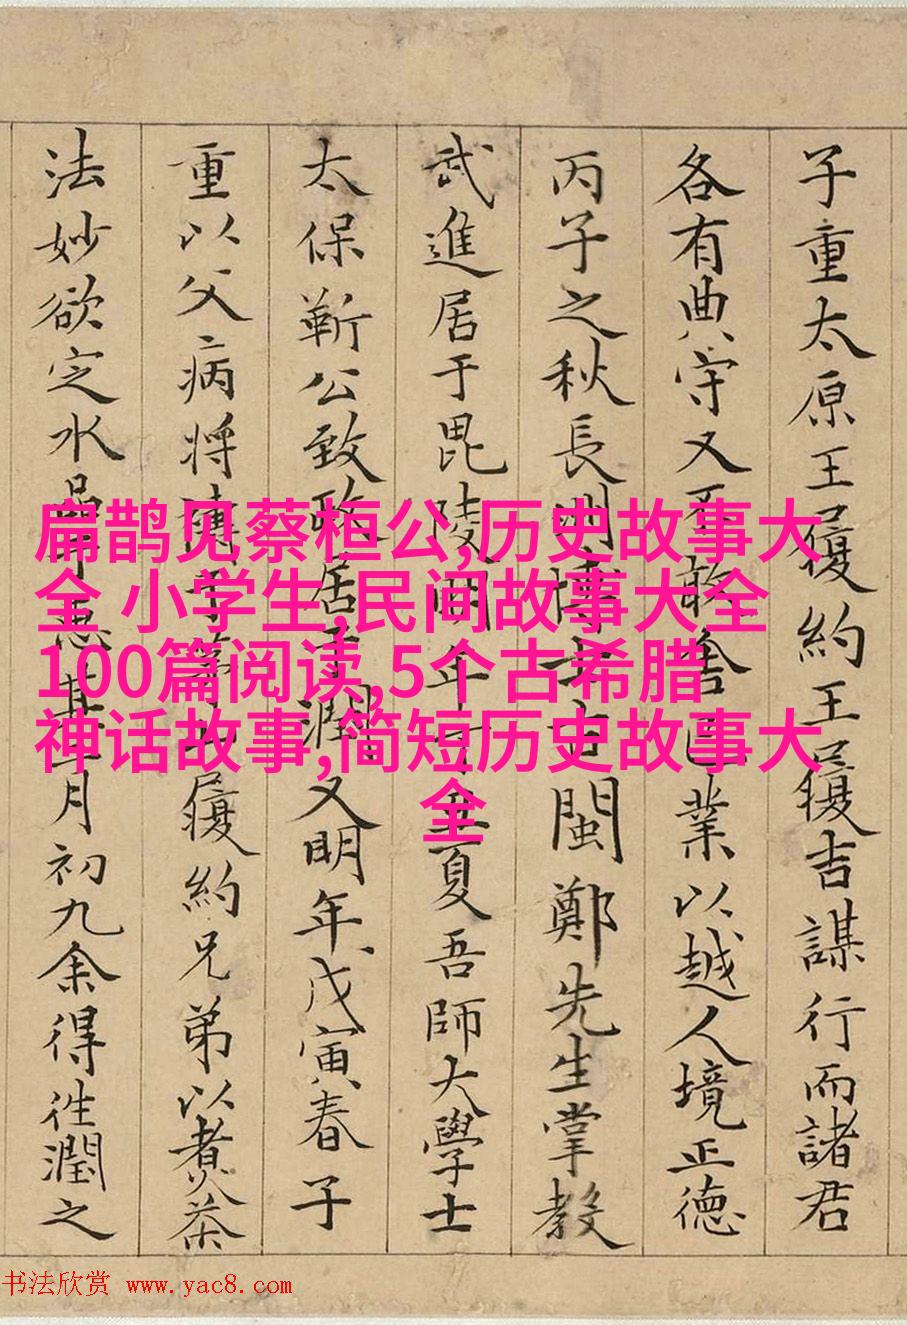 子重太原王履約王履吉謀行而諸君
各有典守又不敢舍己業以越人境正德
丙子之秋長洲博士古閩鄭先生掌教
武進居于毘陵明年丁丑夏吾師大學士
太保靳公致政居于潤又明年戊寅春子
重以父病將禱于茅山履約兄弟以煑茶
法妙欲定水品于惠其月初九余得往潤之
扁鹊见蔡桓公,历史故事大
全 小学生,民间故事大全
100篇阅读,5个古希腊
神话故事,简短历史故事大
全
书法欣赏 www.yac8.com